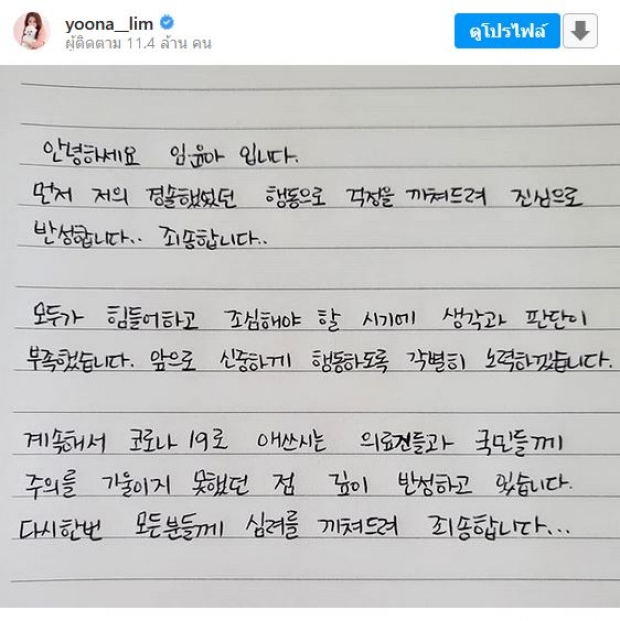 yoona__lim
ผู้ติดตาม 11.4 ล้าน คน
ดูโปรไฟล์
안녕하세요 임윤아 입니다.
먼저 저의 경솔했었던 행동으로 걱정을 끼쳐드려 진심으로
반성합니다.. 죄송합니다..
모두가 힘들어하고 조심해야 할 시기에 생각과 판단이
부족했습니다. 앞으로 신중하게 행동하도록 각별히 노력하겠습니다.
계속해서 코로나 19로 애쓰시는 의료진들과 국민들께
주의를 기울이지 못했던 점 깊이 반성하고 있습니다.
다시한번 모든분들께 심려를 끼쳐드려 죄송합니다...